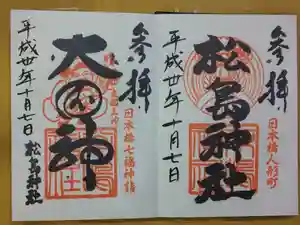 奉拝
日本橋人形町
松島神社
平成廿年十月七日
奉拝
日本橋七福神詣
大国神
平成廿年十月七日
松島神社